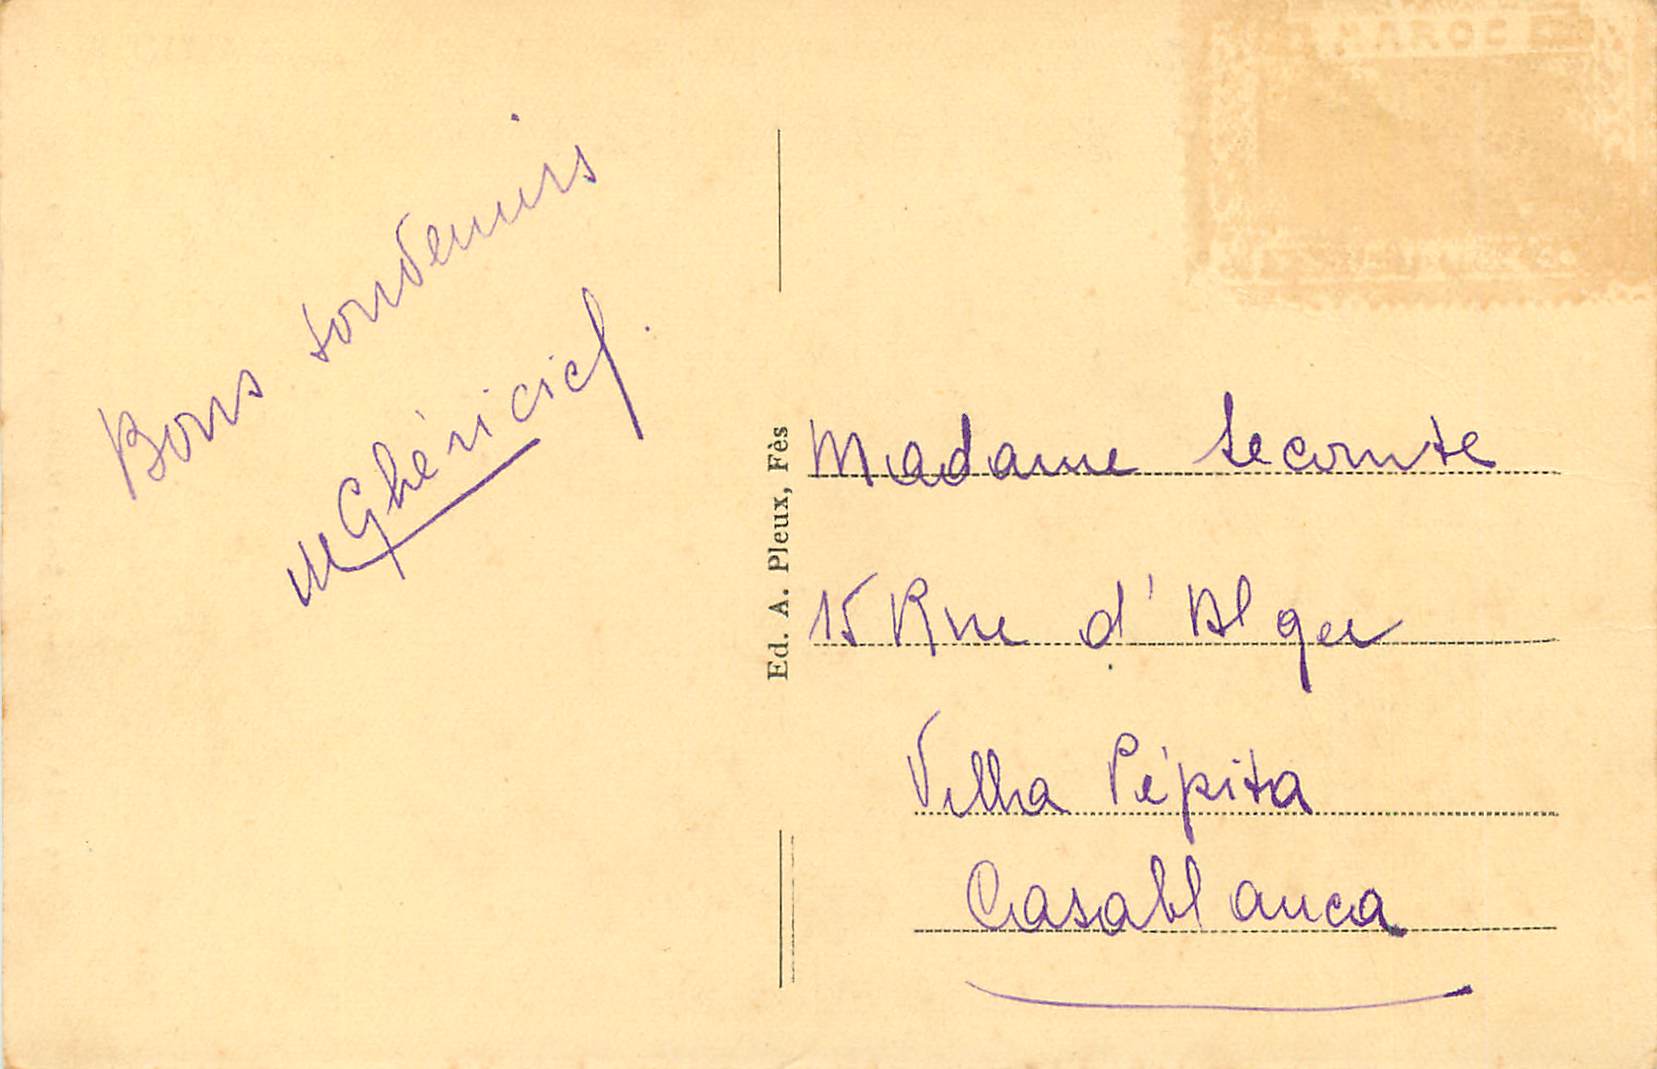 Bons souvenirs
MAROC
Ed. A. Pleux, Fès
Madame Lecomte
15 Rue d'Alger
Villa Pépita
Casablanca